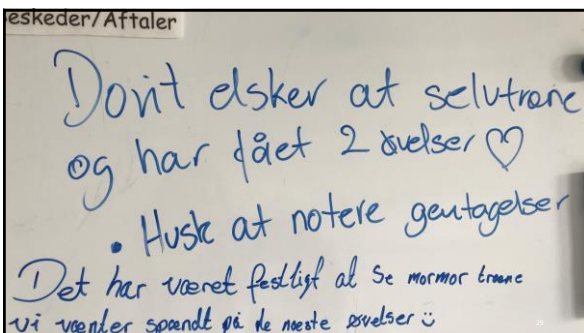 eskeder/Aftaler
Dorit elsker at selvtræne
og har fået 2 øvelser ♡
• Husk at notere gentagelser
Det har været festligt at se mormor træne
vi venter spændt på de næste øvelser ü